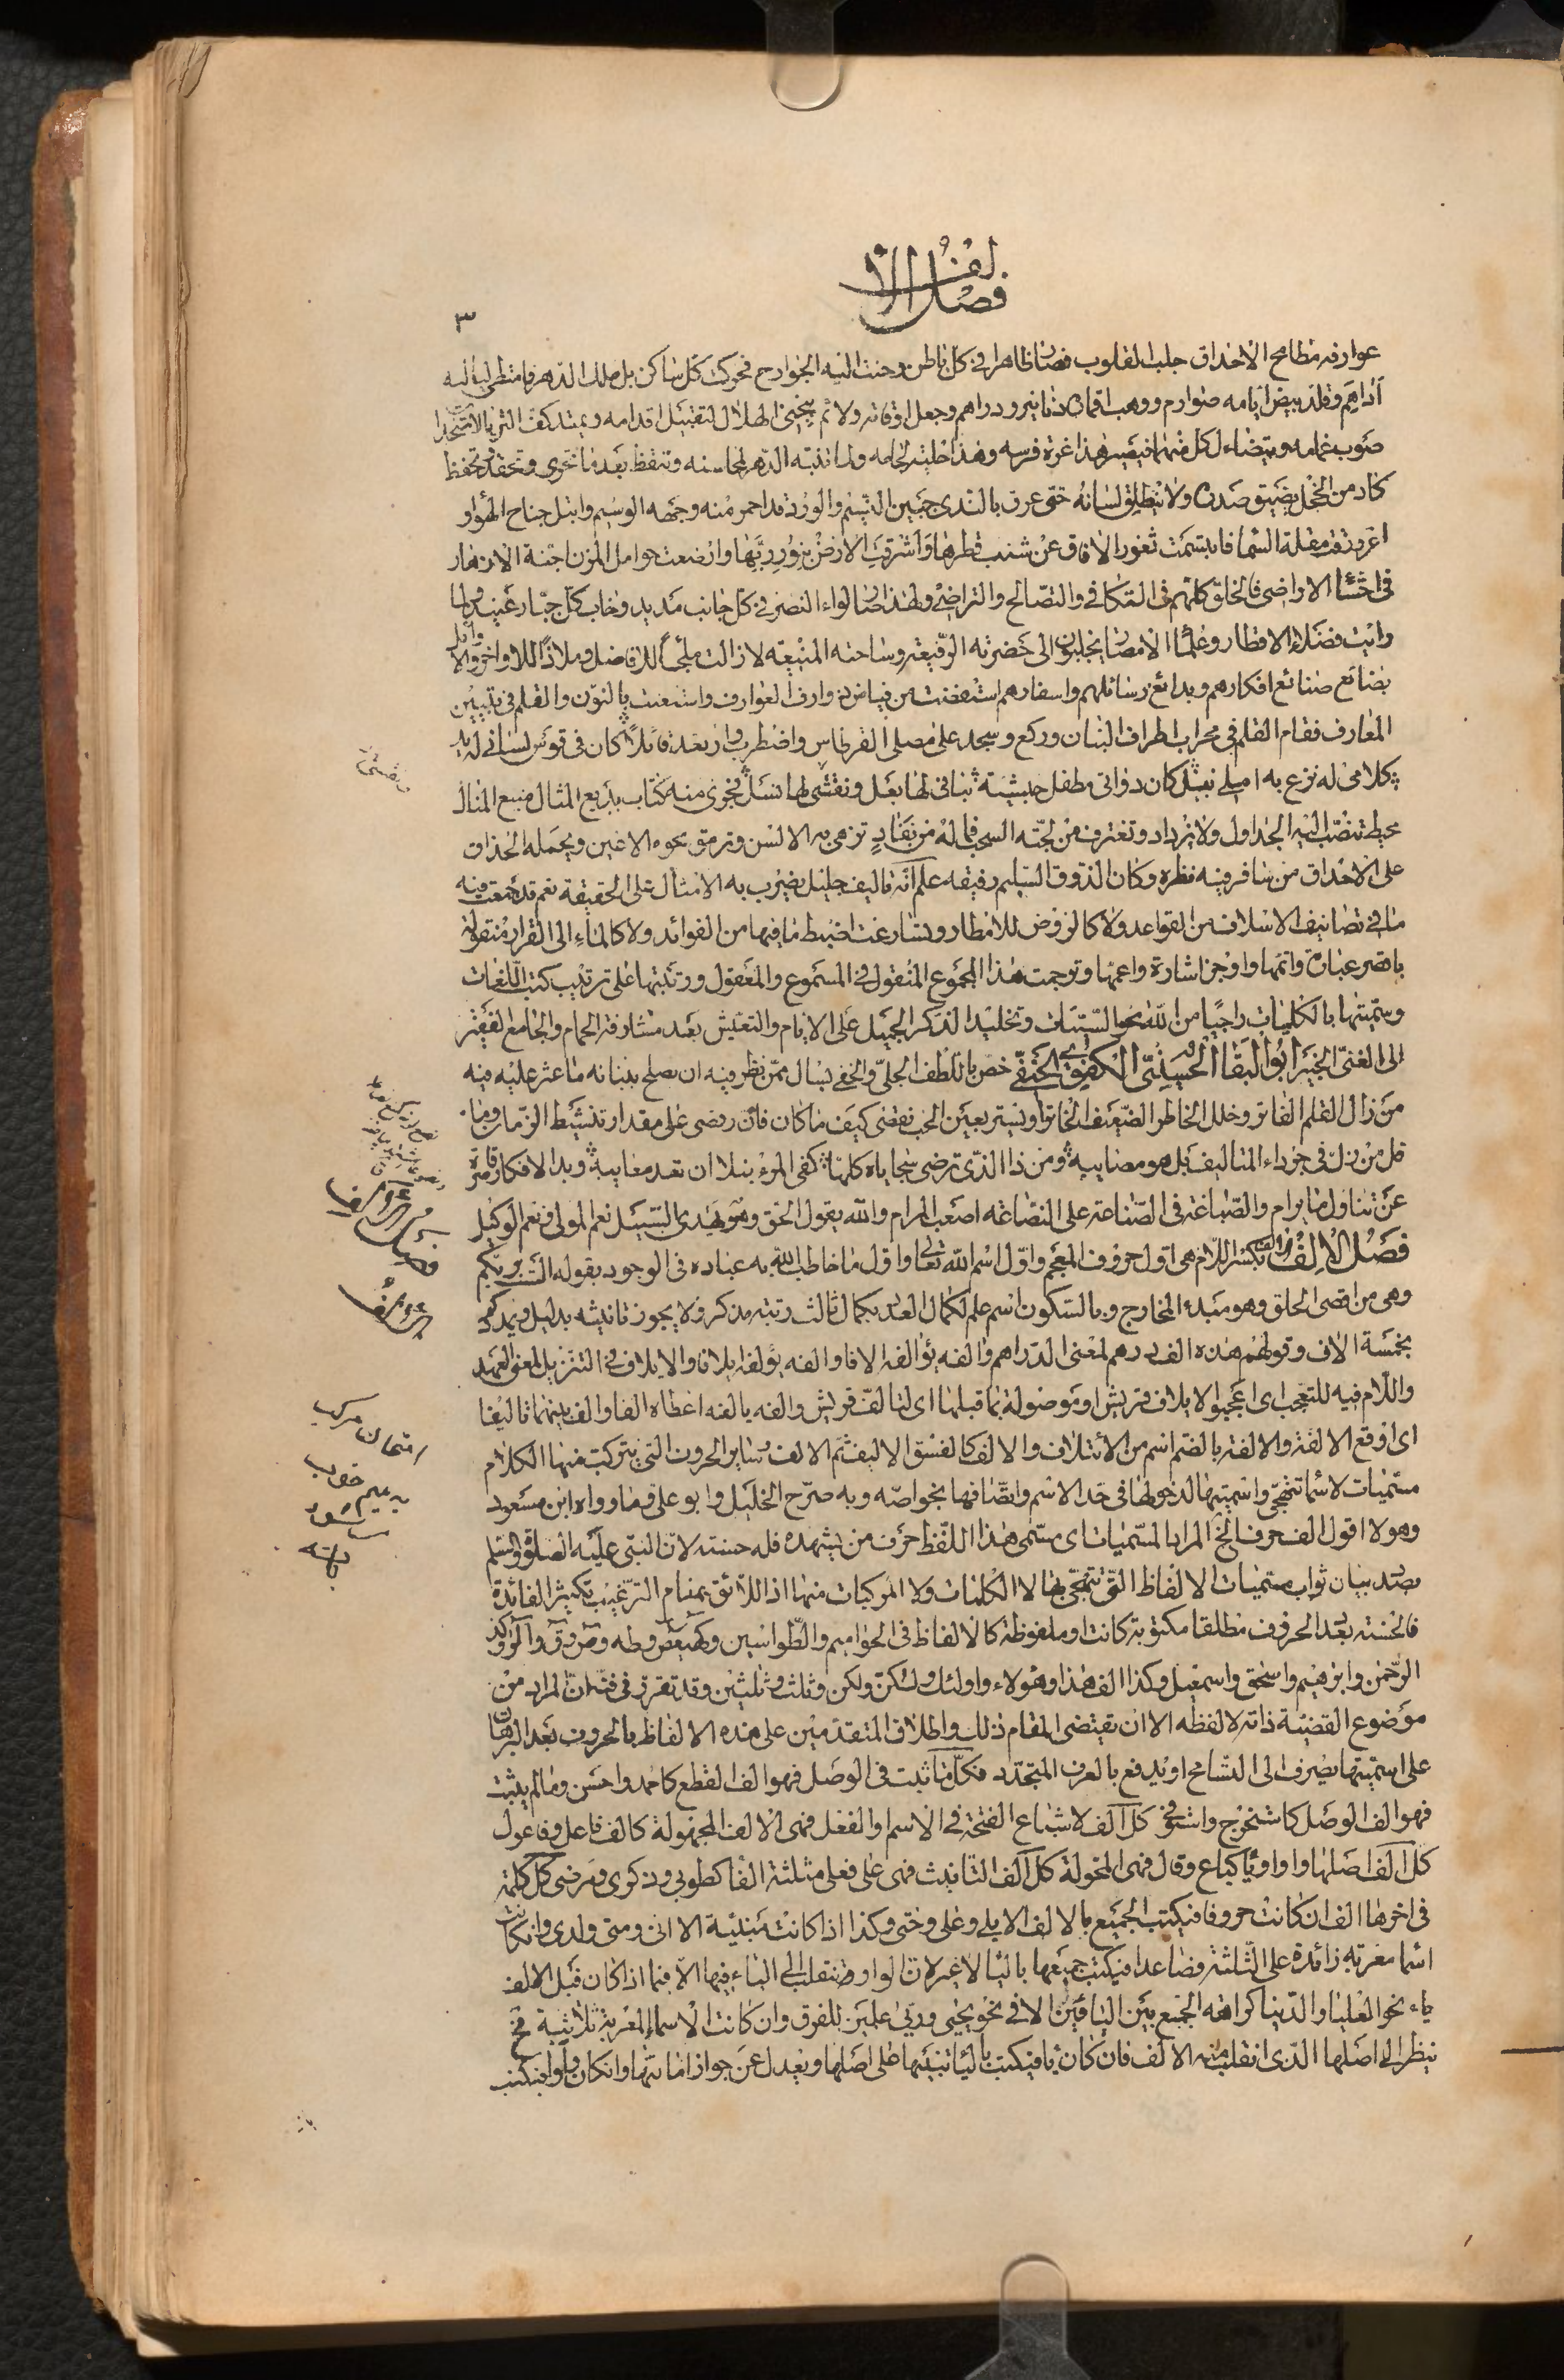 فصل الألف
٣
عوارفه مطامح الاحداق جلب القلوب فصار ظاهرا فى كل باطن وحنت اليه الجوارح فحركت كل ساكن بل ملك الدهر فامتطى لياليه
اداهم وقلد بيض ايامه صوارم ووهب اقماره دنانير ودراهم وجعل اوقاته ولائم ينحنى الهلال لتقبيل اقدامه ويمتد كف الثريا لاستجداء
صوب غمامه ويتضاءل كل منهما فيصير هذا غرة فرسه وهذا حلية لجامه ولما انتبه الدهر لمحاسنه وتيقظ بعد ما تحرى وتحفظ
كاد من الخجل يضيق صدره ولا ينطلق لسانه حتى عرق بالندى جبين النسيم والورد قد احمر منه وجهه الوسيم وابتل جناح الهواء و
اغرورقت مقلة السما فابتسمت ثغور الافاق عن شنب قطرها واشرقت الارض بنور ربها وارضعت حوامل المزن اجنة الازهار
فى احشا الاراضى فالخلق كلهم فى التكافى والتصالح والتراضى ولهذا صار لواء النصر فى كل جانب مديد وخاب كل جبار عنيد ولما
رايت فضلاء الاقطار وعلماء الامصار يجلبون الى حضرته الرفيعة وساحته المنيعة لا زالت ملجأ للافاضل وملاذا للاواخر والاوائل
بضائع صنائع افكارهم وبدائع رسائلهم واسفارهم استفضت من فياض زوارف العوارف واستعنت بالنون والقلم فى تبيين
المعارف فقام القلم فى محراب اطراف البنان وركع وسجد على مصلى القرطاس واضطرب وارتعد قائلا كان فى قوس لسانى له يد
كلامى له نزع به املى نبل كان دواتى مطفل حبشية بنانى لها بعل ونفسى لها نسل فجرى منه كتاب بديع المثال منيع المنال
محيط تنصب اليه الجداول ولا يزداد وتغترف من لجته السحب فما له من نفاد تزهى به الالسن وترمق نحوه الاعين ويحمله الحذاق
على الاحداق من سافر فيه نظره وكان الذوق السليم رفيقه علم انه تاليف جليل يضرب به الامثال على الحقيقة نعم قد جمعت فيه
ما فى تصانيف الاسلاف من القواعد ولا كالروض للامطار وتسارعت لضبط ما فيها من الفوائد ولا كالماء الى القرار منقولة
باقصر عبارة واتمها واوجز اشارة واعمها وترجمت هذا المجموع المنقول فى المسموع والمعقول ورتبتها على ترتيب كتب اللغات
وسميتها بالكليات راجيا من الله محو السيئات وتخليد الذكر الجميل على الايام والتعيش بعد مشارفة الحمام والجامع الفقير
الى الغنى الخبير ابو البقا الحسينى الكفوى الحنفى خص باللطف الجلى والخفى يسال ممن نظر فيه ان يصلح ببنانه ما عثر عليه فيه
من زلل القلم الفاتر وخلل الخاطر الضعيف الخائر او يستر بعين الحب نقصى كيف ما كان فان رضى على مقدار تنشيط الزمان وما
قل من زل فى جزداء التاليف بل هو مصايبه ومن ذا الذى ترضى سجاياه كلها كفى المرء نبلا ان تعد معايبه ويد الافكار قاصرة
عن تناول ما يرام والصياغة فى الصناعة على النصاعة اصعب المرام والله يقول الحق وهو يهدى السبيل نعم المولى ونعم الوكيل
فصل الالف بكسر اللام هى اول حروف المعجم واول اسم الله تعالى واول ما خاطب الله به عباده فى الوجود بقوله الست بربكم
وهى من اقصى الحلق وهو مبدء المخارج وبالسكون اسم علم لكمال العدد بكمال ثالث رتبة مذكر ولا يجوز تانيثه بدليل يمددكم
بخمسة الاف وقولهم هذه الف درهم لمعنى الدراهم والفه يؤالفه الافا والفه يؤلفه ايلافا والايلاف فى التنزيل لمعنى العهد
واللام فيه للتعجب اى اعجبوا لايلاف قريش او موصولة بما قبلها اى لتالف قريش والفه يالفه اعطاه الفا والف بينهما تاليفا
اى اوقع الالفة والالفة بالضم اسم من الائتلاف والالف كالفسق الاليف ثم الالف وساير الحروف التى يتركب منها الكلام
مسميات لاسما تتهجى واسميتها لدخولها فى حد الاسم واتصافها بخواصه وبه صرح الخليل وابو على فما رواه ابن مسعود
وهو لا اقول الف حرف الخ المراد المسميات اى مسمى هذا اللفظ حرف من يشهده فله حسنة لان النبى عليه الصلوة والسلم
بصدد بيان ثواب مسميات الالفاظ التى تتهجى بها لا الكلمات ولا المركبات منها اذ اللائق بمقام الترغيب تكثير الفائدة
فالحسنة بعدد الحروف مطلقا مكتوبة كانت او ملفوظة كالالفاظ فى الحواميم والطواسين وكهيعص وطه وص وق والر وكذ
الرحمن وابرهيم واسحق واسمعيل وكذا الف هذا وهؤلاء واولئك ولكن ولكن وثلث وثلثين وقد تقرر فى فنه ان المراد من
موضوع القضية ذاته لا لفظه الا ان يقتضى المقام ذلك واطلاق المتقدمين على هذه الالفاظ بالحروف بعد البرهان
على اسميتها يصرف الى التسامح او يدفع بالعرف المتجدد فكل ما ثبت فى الوصل فهو الف القطع كاحمد واحسن وما لم يثبت
فهو الف الوصل كاستخرج واستوفى كل الف لاشباع الفتحة فى الاسم والفعل فهى الالف المجهولة كالف فاعل وفاعول
كل الف اصلها واو او يا كباع وقال فهى المحولة كل الف التانيث فهى على فعلى مثلثة الفا كطوبى وذكرى ومرضى كل كلمة
فى اخرها الف ان كانت حروفا فيكتب الجميع بالالف الا بلى وعلى وحتى وكذا اذا كانت مبنية الا انى ومتى ولدى وان كانت
اسما معربة زائدة على الثلثة فصاعدا فيكتب جميعها باليا لا غير لان الواو تنقلب الى الياء فيها الا فيما اذا كان قبل الالف
ياء نحو العليا والدنيا كراهة الجمع بين اليائين الا فى نحو يحيى وربى علمين للفرق وان كانت الاسماء المعربة ثلاثية فح
ينظر الى اصلها الذى انقلبت منه الالف فان كان يا فيكتب باليا تنبيها على اصلها ويعدل عن جواز امالتها وان كان واوا فيكتب
فصل الالف
امتحان مركب